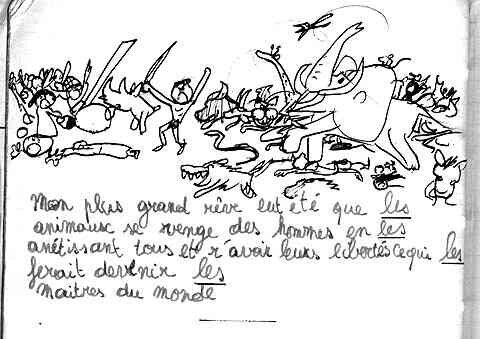 Mon plus grand rêve eut été que les
animaux se venge des hommes en les
anétissant tous et r'avoir leurs libertés ce qui les
ferait devenir les
maitres du monde